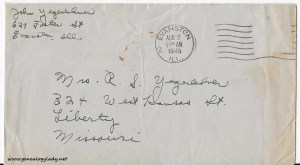 John Yegerlehner
Foster St
Evanston Ill.
EVANSTON
AUG
AM
1945
ILL.
Mrs. R. S. Yegerlehner
324 West Kansas St.
Liberty
Missouri
www.genealogylady.net